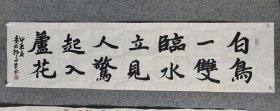 白鳥
一雙
臨水
立見
人驚
起入
蘆花